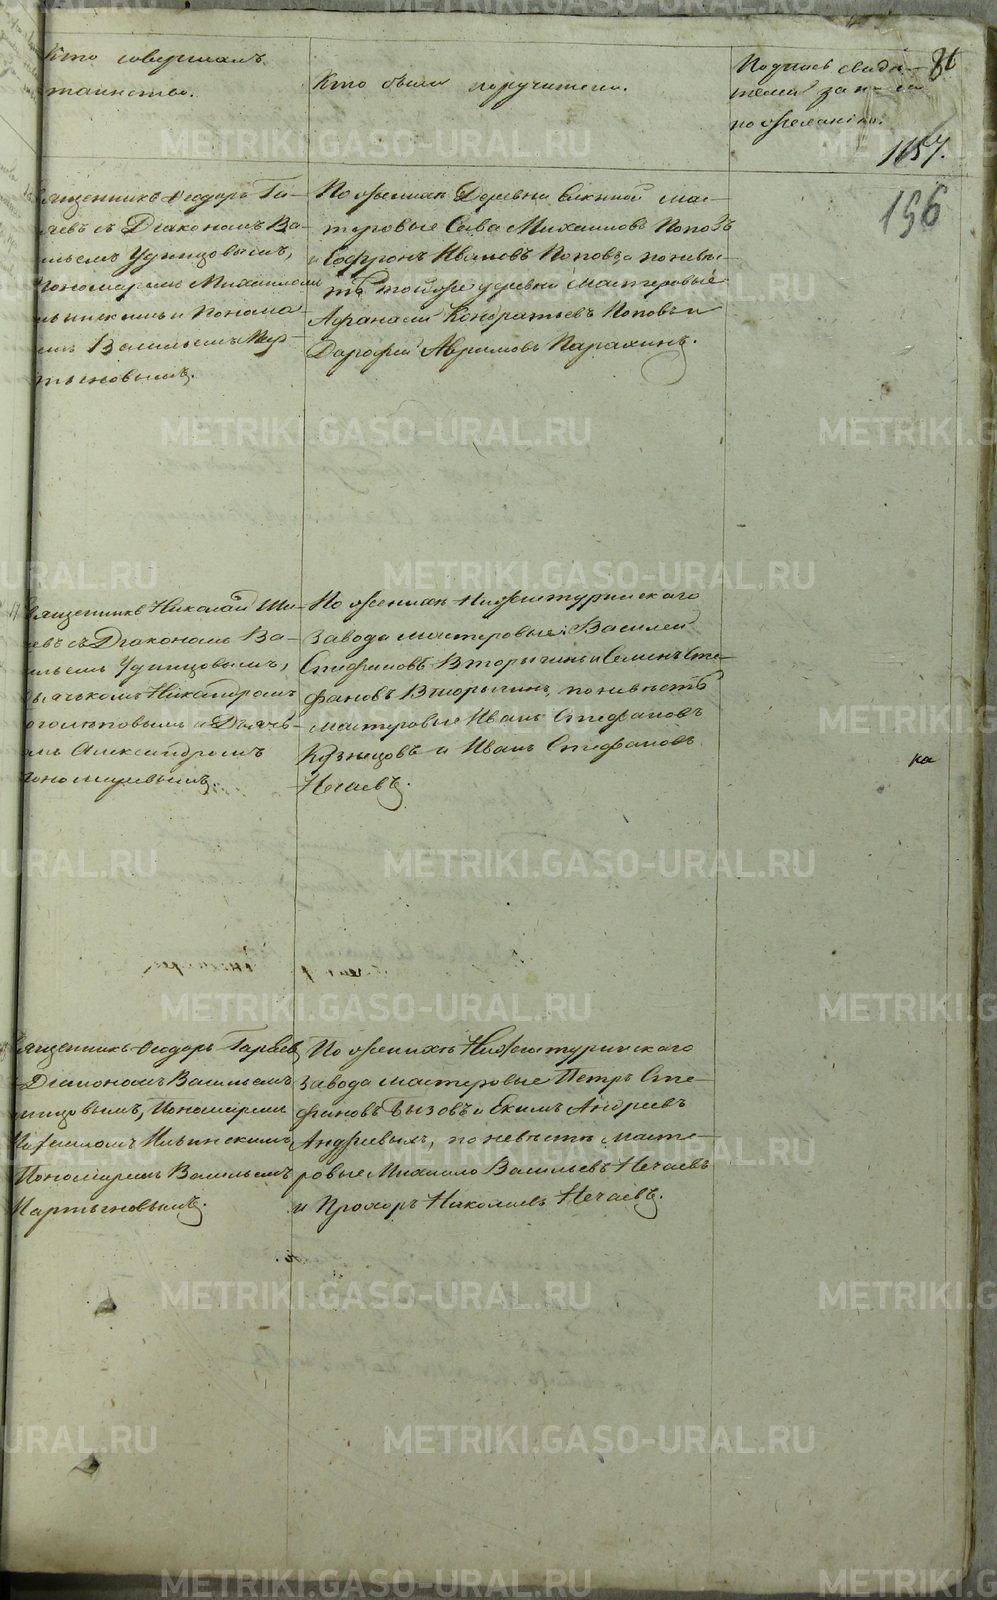 Кто совершалъ
таинство.
Кто были поручители.
Подпись свиде-
телей записи
по желанію.
86
1157.
196
Священникъ Феодоръ Га-
съ Діакономъ Ва-
сильемъ Удинцовымъ,
Пономаремъ Михаиломъ
Ильинскимъ и Понома-
ремъ Васильемъ Мар-
тыновымъ.
По женихѣ Деревни мас-
теровые Сава Михаиловъ Поповъ
и Софронъ Ивановъ Поповъ, а по невѣс-
тѣ той же деревни мастеровые
Афанасій Кондратьевъ Поповъ и
Дарофей Аврамовъ
Священникъ Николай
съ Діакономъ Ва-
сильемъ Удинцовымъ,
Дьячькомъ Никандромъ
и Дьячь-
комъ Александромъ
Пономаревымъ.
По женихѣ Нижнетуринскаго
завода мастеровые: Василей
Стефановъ Вторыгинъ и Семенъ Сте-
фановъ Вторыгинъ, по невѣстѣ
мастеровые Иванъ Стефановъ
Кузнецовъ и Иванъ Стефановъ
Нечаевъ.
ка
Священникъ Феодоръ
Діакономъ Васильемъ
Удинцовымъ, Пономаремъ
Михаиломъ Ильинскимъ,
Пономаремъ Васильемъ
Мартыновымъ.
По женихѣ Нижнетуринскаго
завода мастеровые Петръ Сте-
фановъ и Екимъ Андреевъ
по невѣстѣ масте-
ровые Михаило Васильевъ Нечаевъ
и Прохоръ Николаевъ Нечаевъ.
METRIKI.GASO-URAL.RU